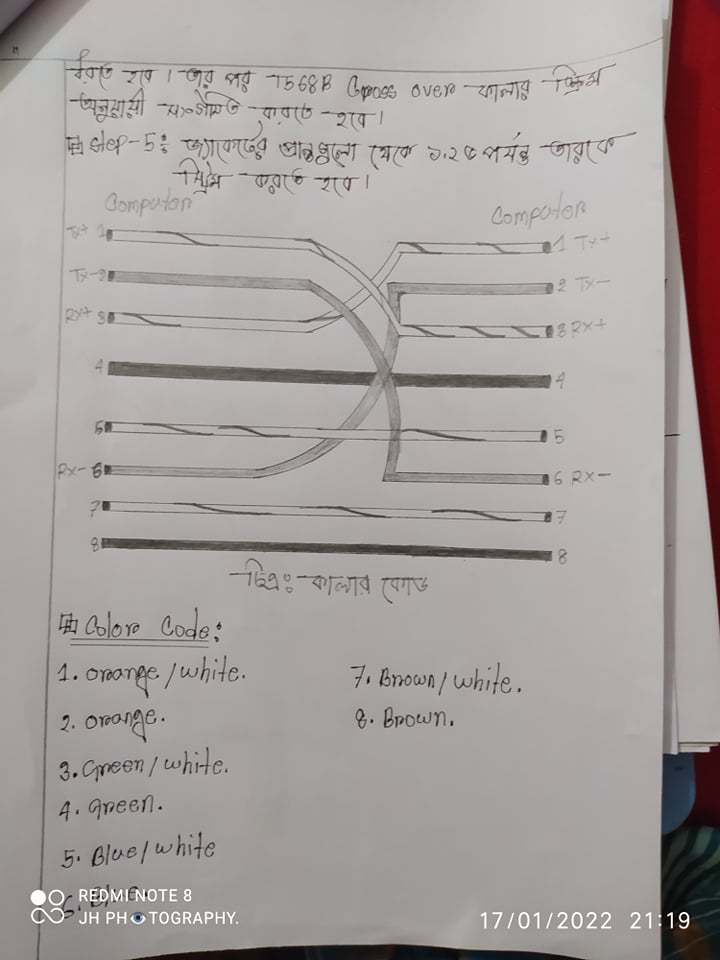 করতে হবে । তার পর T568B Cross over কালার স্ক্রিম
অনুযায়ী সংগঠিত করতে হবে।
Step-5: জ্যাকেটের প্রান্তগুলো থেকে ১.২৫ পর্যন্ত তারকে
স্ট্রিম করতে হবে।
Computer
Computer
Tx+ 1
1 Tx+
Tx-2
2 Tx-
Rx+ 3
3 Rx+
4
4
5
5
Rx- 6
6 Rx-
7
7
8
8
চিত্র: কালার কোড
Color Code:
1. Orange/white.
2. Orange.
3. Green/white.
4. Green.
5. Blue/white
6. Blue.
7. Brown/white.
8. Brown.
REDMI NOTE 8
JH PHOTOGRAPHY.
17/01/2022 21:19